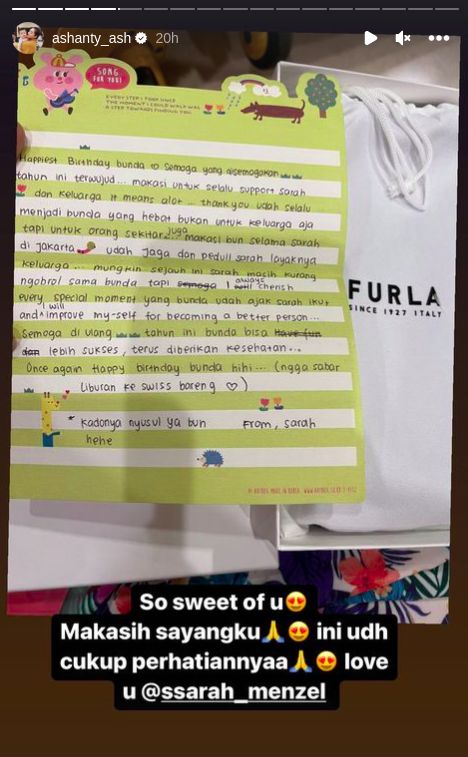 ashanty_ash 20h
SONG
FOR YOU!
EVERY STEP I TOOK SINCE
THE MOMENT I COULD WALK WAS
A STEP TOWARDS FINDING YOU.
Happiest Birthday bunda to semoga yang disemogakan
tahun ini terwujud... makasi untuk selalu support sarah
dan keluarga it means alot .. thank you udah selalu
menjadi bunda yang hebat bukan untuk keluarga aja
tapi untuk orang sekitar.. juga makasi bun selama sarah
di jakarta udah jaga dan peduli sarah layaknya
keluarga ... mungkin sejauh ini sarah masih kurang
ngobrol sama bunda tapi semoga I will always cherish
every special moment yang bunda udah ajak sarah ikut
and I will improve my-self for becoming a better person...
semoga di ulang tahun ini bunda bisa have fun
dan lebih sukses, terus diberikan kesehatan...
Once again Happy birthday bunda hihi... (ngga sabar
liburan ke swiss bareng ♡)
* kadonya nyusul ya bun
hehe
From, sarah
FURLA
SINCE 1927 ITALY
So sweet of u😍
Makasih sayangku🙏😍 ini udh
cukup perhatiannyaa🙏😍 love
u @ssarah_menzel